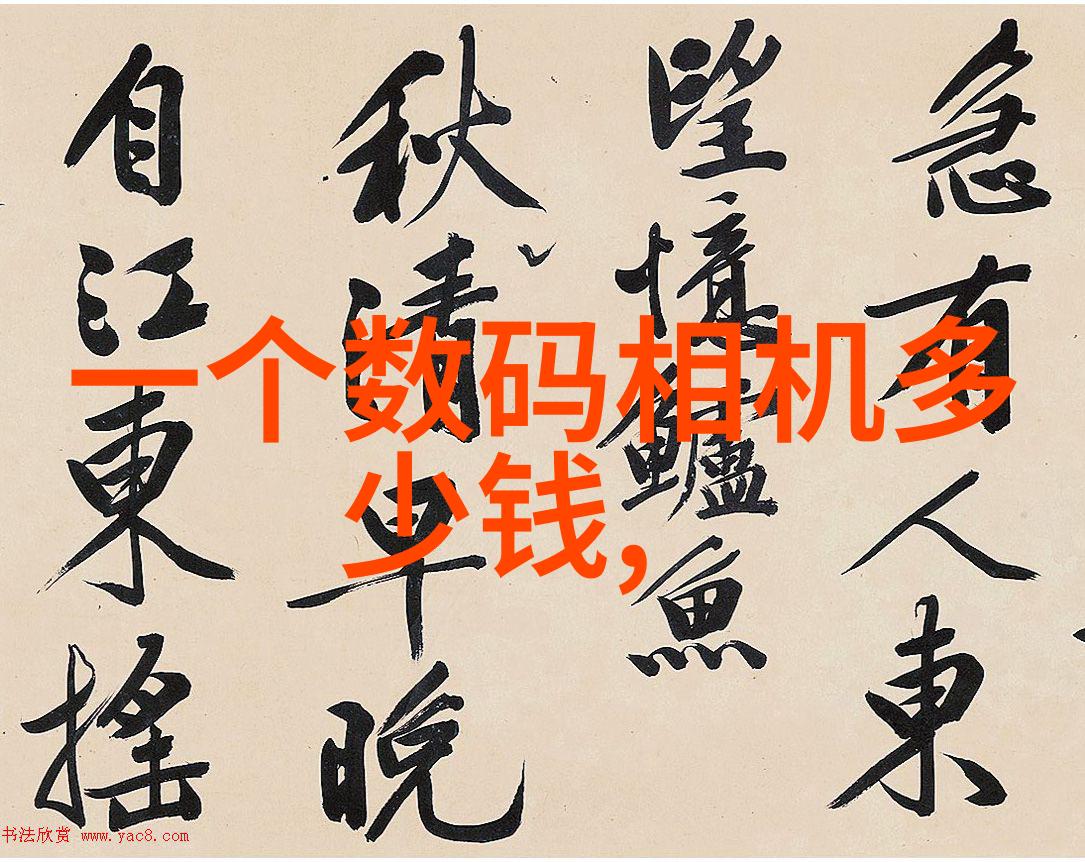 一个数码相机多
少钱,
急有人東
望憶鱸魚
秋清早晚
自江東搖
书法欣赏 www.yac8.com